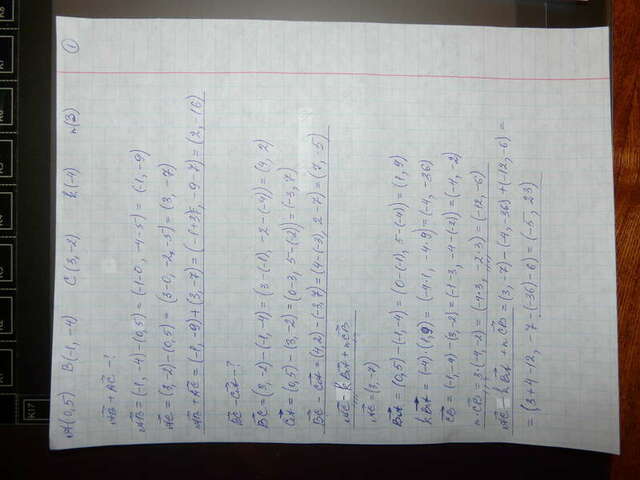 1
A(0,5) B(-1,-4) C(3,-2) k(-4) n(3)
AB + AC - ?
AB = (-1,-4) - (0,5) = (-1-0, -4-5) = (-1,-9)
AC = (3,-2) - (0,5) = (3-0, -2-5) = (3,-7)
AB + AC = (-1,-9) + (3,-7) = (-1+3, -9-7) = (2,-16)
BC - CA - ?
BC = (3,-2) - (-1,-4) = (3-(-1), -2-(-4)) = (4,2)
CA = (0,5) - (3,-2) = (0-3, 5-(-2)) = (-3,7)
BC - CA = (4,2) - (-3,7) = (4-(-3), 2-7) = (7,-5)
AC - kBA + nCB
AC = (3,-7)
BA = (0,5) - (-1,-4) = (0-(-1), 5-(-4)) = (1,9)
kBA = (-4)·(1,9) = (-4·1, -4·9) = (-4,-36)
CB = (-1,-4) - (3,-2) = (-1-3, -4-(-2)) = (-4,-2)
nCB = n·(-4,-2) = (-4·3, -2·3) = (-12,-6)
AC - kBA + nCB = (3,-7) - (-4,-36) + (-12,-6) =
= (3+4-12, -7-(-36)-6) = (-5, 23)
K17